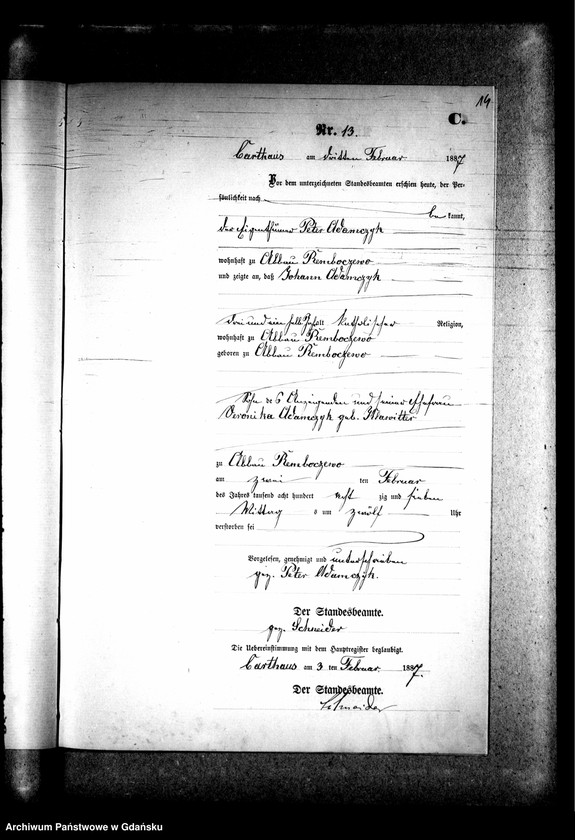 14
C.
Nr. 13.
Carthaus am dritten Februar 1887
Vor dem unterzeichneten Standesbeamten erschien heute, der Per-
sönlichkeit nach
be kannt,
der Eigenthümer Peter Adamczyk
wohnhaft zu Abbau Remboczewo
und zeigte an, daß Johann Adamczyk
drei und ein halb Jahr alt katholischer Religion,
wohnhaft zu Abbau Remboczewo
geboren zu Abbau Remboczewo
Sohn des Anzeigenden und seiner Ehefrau
Veronika Adamczyk geb. Klawitter
zu Abbau Remboczewo
am zwei ten Februar
des Jahres tausend acht hundert acht zig und sieben
Mittag s um zwölf Uhr
verstorben sei
Vorgelesen, genehmigt und unterschrieben
gez. Peter Adamczyk.
Der Standesbeamte.
gez. Schneider
Die Uebereinstimmung mit dem Hauptregister beglaubigt.
Carthaus am 3 ten Februar 1887.
Der Standesbeamte.
Schneider
Archiwum Państwowe w Gdańsku